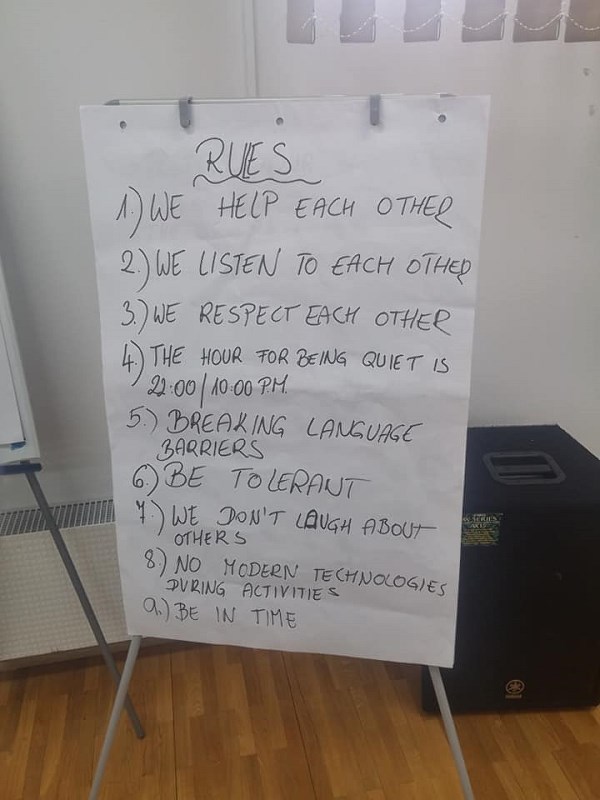 RULES
1.) WE HELP EACH OTHER
2.) WE LISTEN TO EACH OTHER
3.) WE RESPECT EACH OTHER
4.) THE HOUR FOR BEING QUIET IS
22:00/10:00 P.M.
5.) BREAKING LANGUAGE
BARRIERS
6.) BE TOLERANT
7.) WE DON'T LAUGH ABOUT
OTHERS
8.) NO MODERN TECHNOLOGIES
DURING ACTIVITIES
9.) BE IN TIME
YAMAHA